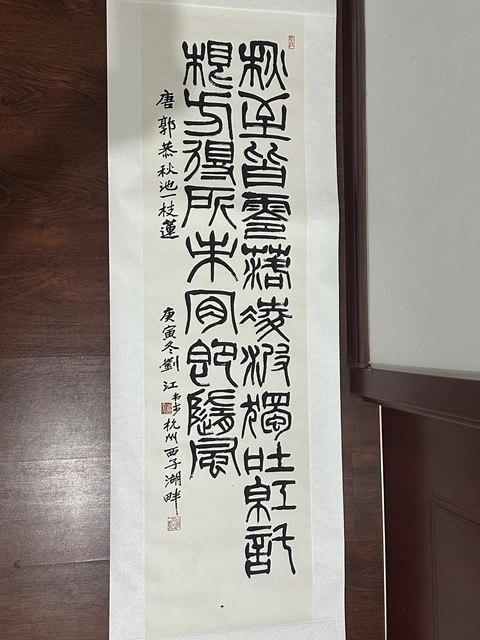 秋至皆零落凌波獨吐紅託
根方得所未肯即隨風
唐郭恭秋池一枝蓮
庚寅冬劉江書杭州西子湖畔